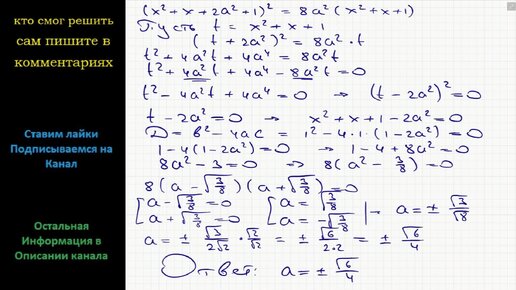 кто смог решить
сам пишите в
комментариях
Ставим лайки
Подписываемся на
Канал
Остальная
Информация в
Описании канала
(x²+x+2a²+1)² = 8a²(x²+x+1)
Пусть t = x²+x+1
(t+2a²)² = 8a²·t
t²+4a²t+4a⁴ = 8a²t
t²+4a²t+4a⁴-8a²t=0
t²-4a²t+4a⁴=0 → (t-2a²)²=0
t-2a²=0 → x²+x+1-2a²=0
D=b²-4ac = 1²-4·1·(1-2a²)=0
1-4(1-2a²)=0 → 1-4+8a²=0
8a²-3=0 → 8(a²-3/8)=0
8(a-√(3/8))(a+√(3/8))=0
[a-√(3/8)=0 [a=√(3/8) |→ a=±√3/√8
[a+√(3/8)=0 [a=-√(3/8)
a=± √3/(2√2) · √2/√2 = ± √6/(2·2) = ± √6/4
Ответ: a=± √6/4